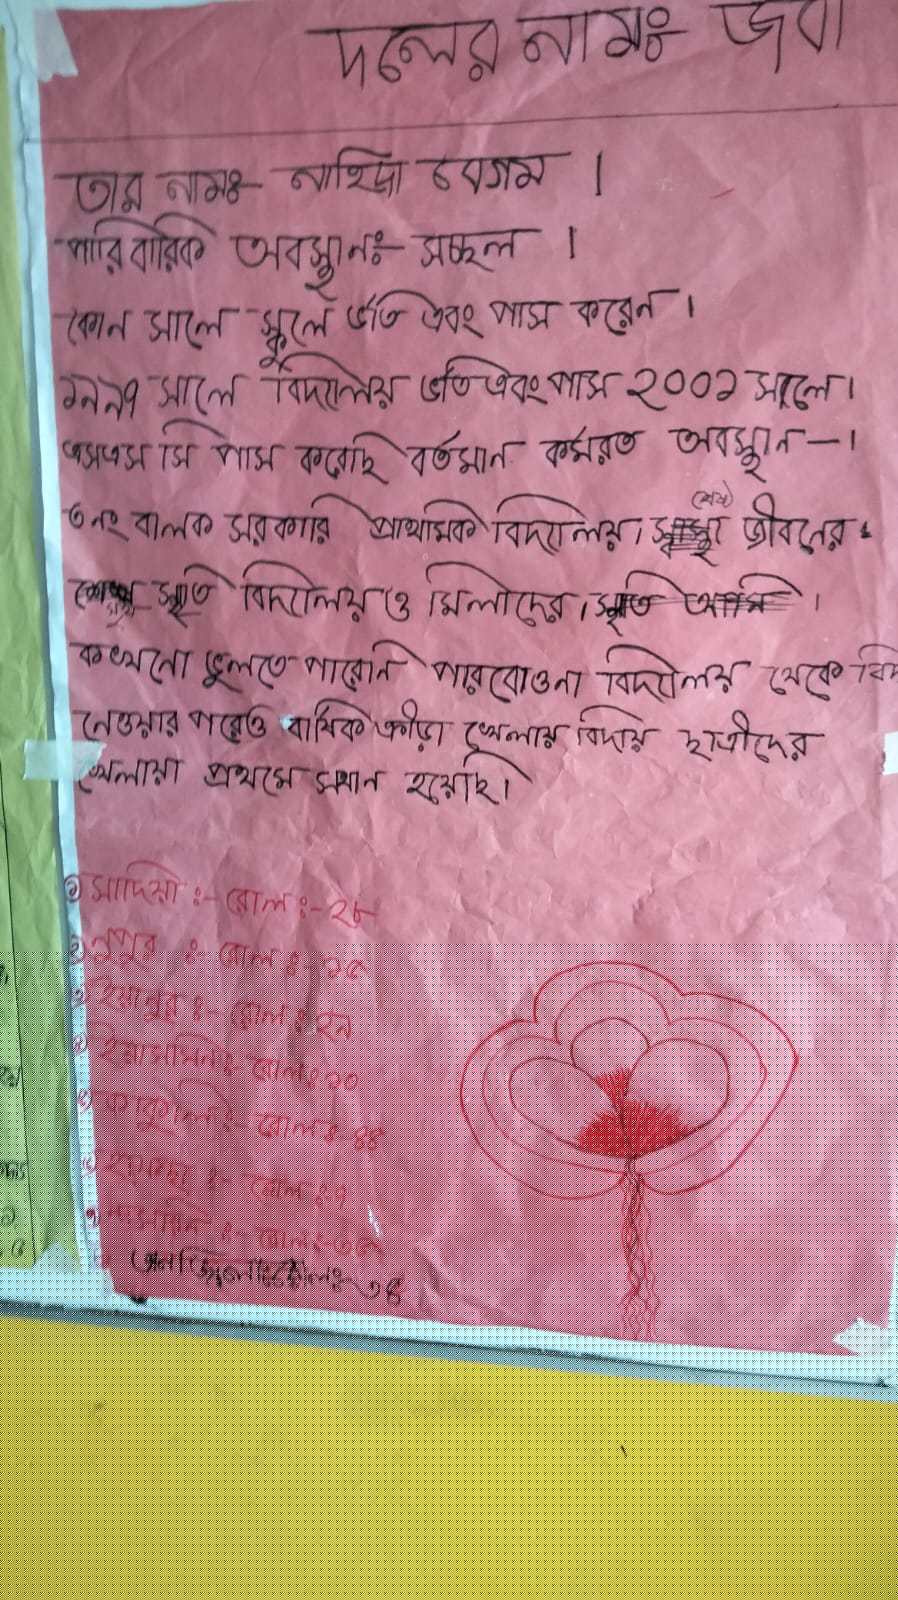 দলের নামঃ- জবা
তার নামঃ- নাহিদ্রা বেগম ।
পারিবারিক অবস্থানঃ- সচ্ছল ।
কোন সালে স্কুলে ভর্তি এবং পাস করেন ।
১৯৯৭ সালে বিদ্যালয় ভর্তি এবং পাস ২০০১ সালে।
এসএস সি পাস করেছি বর্তমান কর্মরত অবস্থান —।
৩নং বালক সরকারি প্রাথমিক বিদ্যালয়। জীবনের
স্মৃতি বিদ্যালয় ও মিলাদের।
কখনো ভুলতে পারেনি পারবোওনা বিদ্যালয় থেকে বিদ
নেওয়ার পরেও বার্ষিক ক্রীড়া খেলায় বিদায় ছাত্রীদের
খেলায়া প্রথমে স্থান হয়েছি।
১) সাদিয়া :- রোল :- ২৮
২) নুপুর :- রোল :- ১৫
রোল : ২৯
ইয়াসমিন :- রোল : ১০
রোল : ৪৪
রোল : ৭
রোলঃ- ৩৪